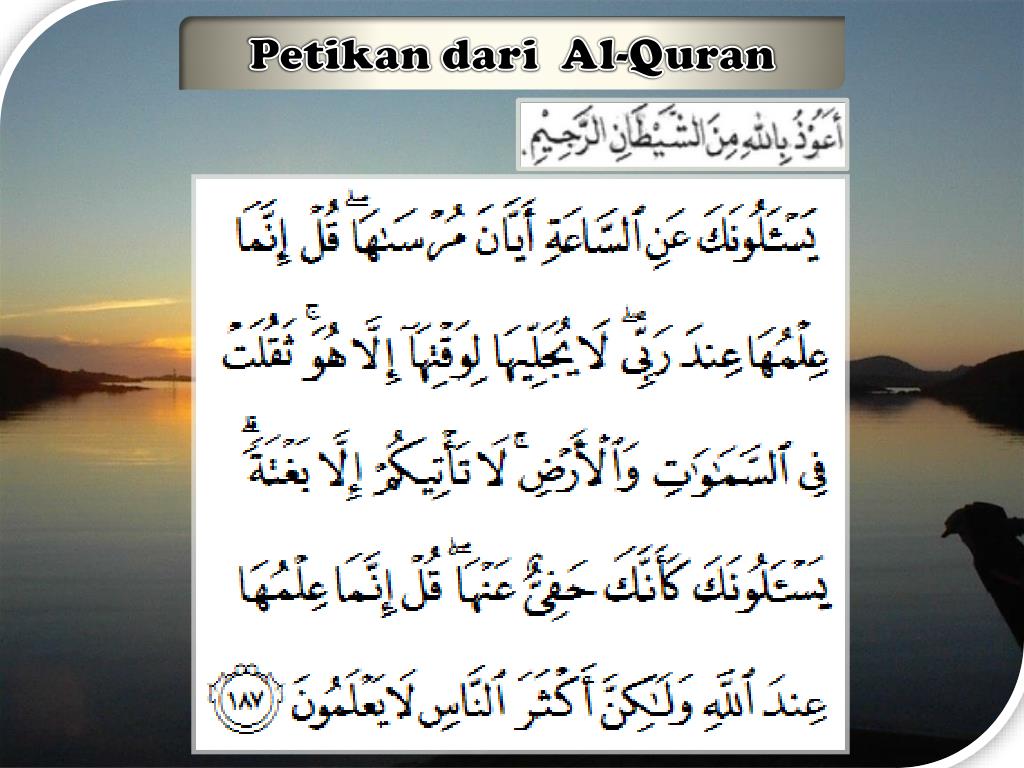 Petikan dari Al-Quran
أَعُوْذُ بِاللهِ مِنَ الشَّيْطَانِ الرَّجِيْمِ.
يَسْـَٔلُونَكَ عَنِ ٱلسَّاعَةِ أَيَّانَ مُرْسَىٰهَا ۖ قُلْ إِنَّمَا
عِلْمُهَا عِندَ رَبِّى ۖ لَا يُجَلِّيهَا لِوَقْتِهَآ إِلَّا هُوَ ۚ ثَقُلَتْ
فِى ٱلسَّمَـٰوَٰتِ وَٱلْأَرْضِ ۚ لَا تَأْتِيكُمْ إِلَّا بَغْتَةً ۗ
يَسْـَٔلُونَكَ كَأَنَّكَ حَفِىٌّ عَنْهَا ۖ قُلْ إِنَّمَا عِلْمُهَا
عِندَ ٱللَّهِ وَلَـٰكِنَّ أَكْثَرَ ٱلنَّاسِ لَا يَعْلَمُونَ ١٨٧